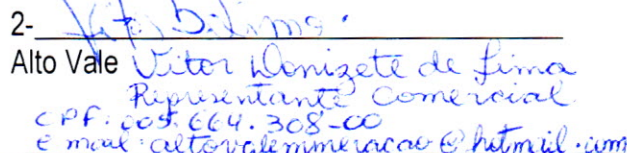 2-
Alto Vale Vitor Donizete de Lima
Representante Comercial
CPF: 005.664.308-00
E mail: altovalemineracao@hotmail.com